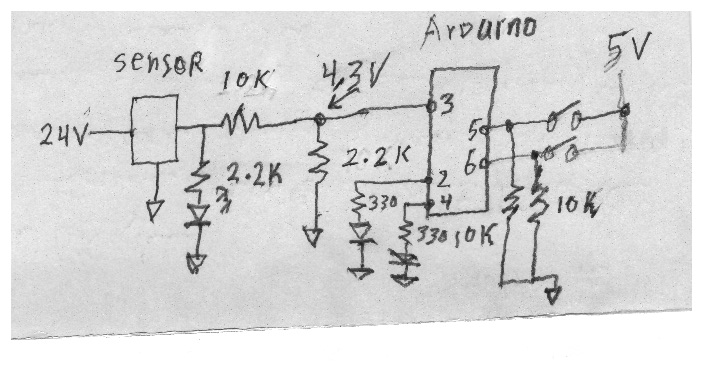 Arduino
sensor
5V
10K
4.3V
24V
3
5
2.2K
2.2K
6
2
330
4
330
10K
10K